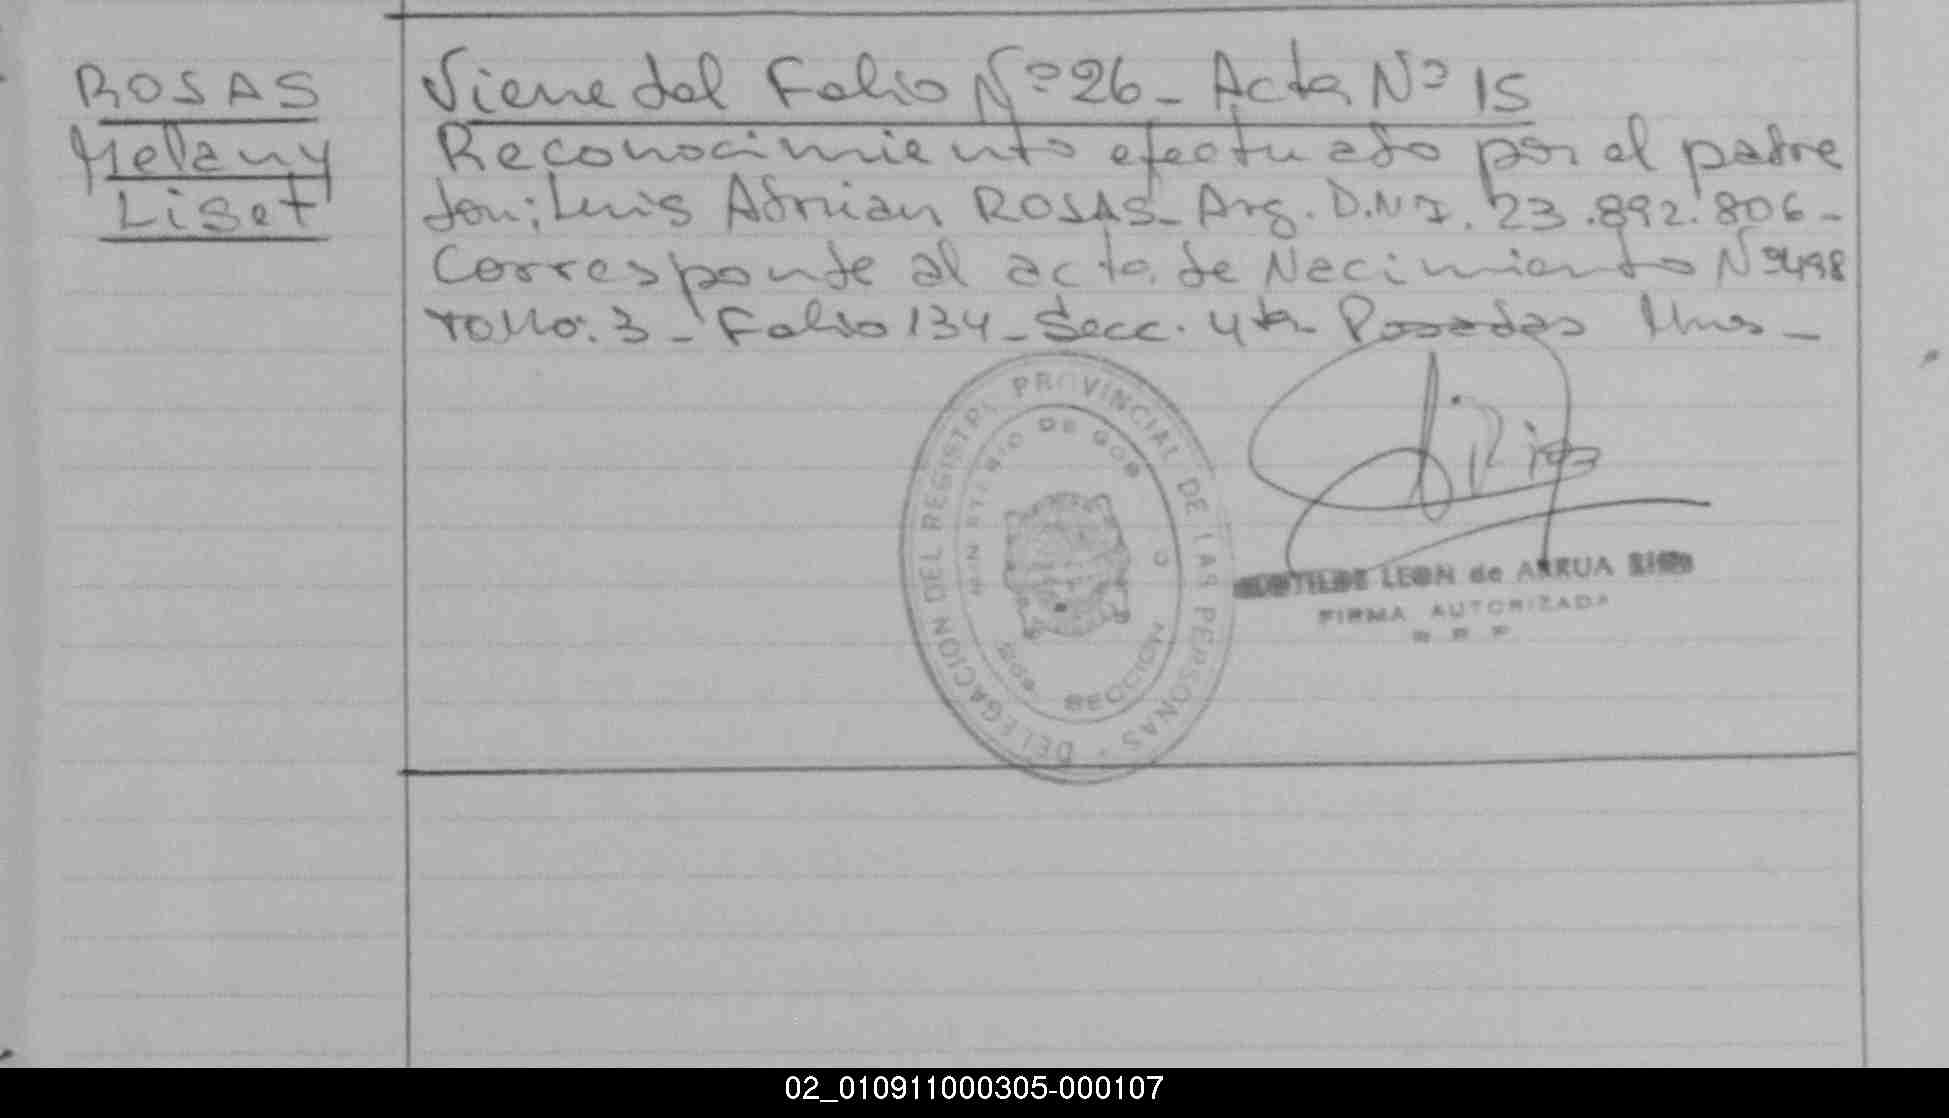 ROSAS
Melany
Liset
Viene del Folio Nº 26 - Acta Nº 15
Reconocimiento efectuado por el padre
don; Luis Adrian ROSAS - Arg. D.N.I. 23.892.806 -
Corresponde al acta de Nacimiento Nº 498
Tomo: 3 - Folio 134 - Secc. 4ta Posadas Mnes -
DELEGACION DEL REGISTRO PROVINCIAL DE LAS PERSONAS
MINISTERIO DE GOB
SECCION
LEON de ARRUA
FIRMA AUTORIZADA
02_010911000305-000107